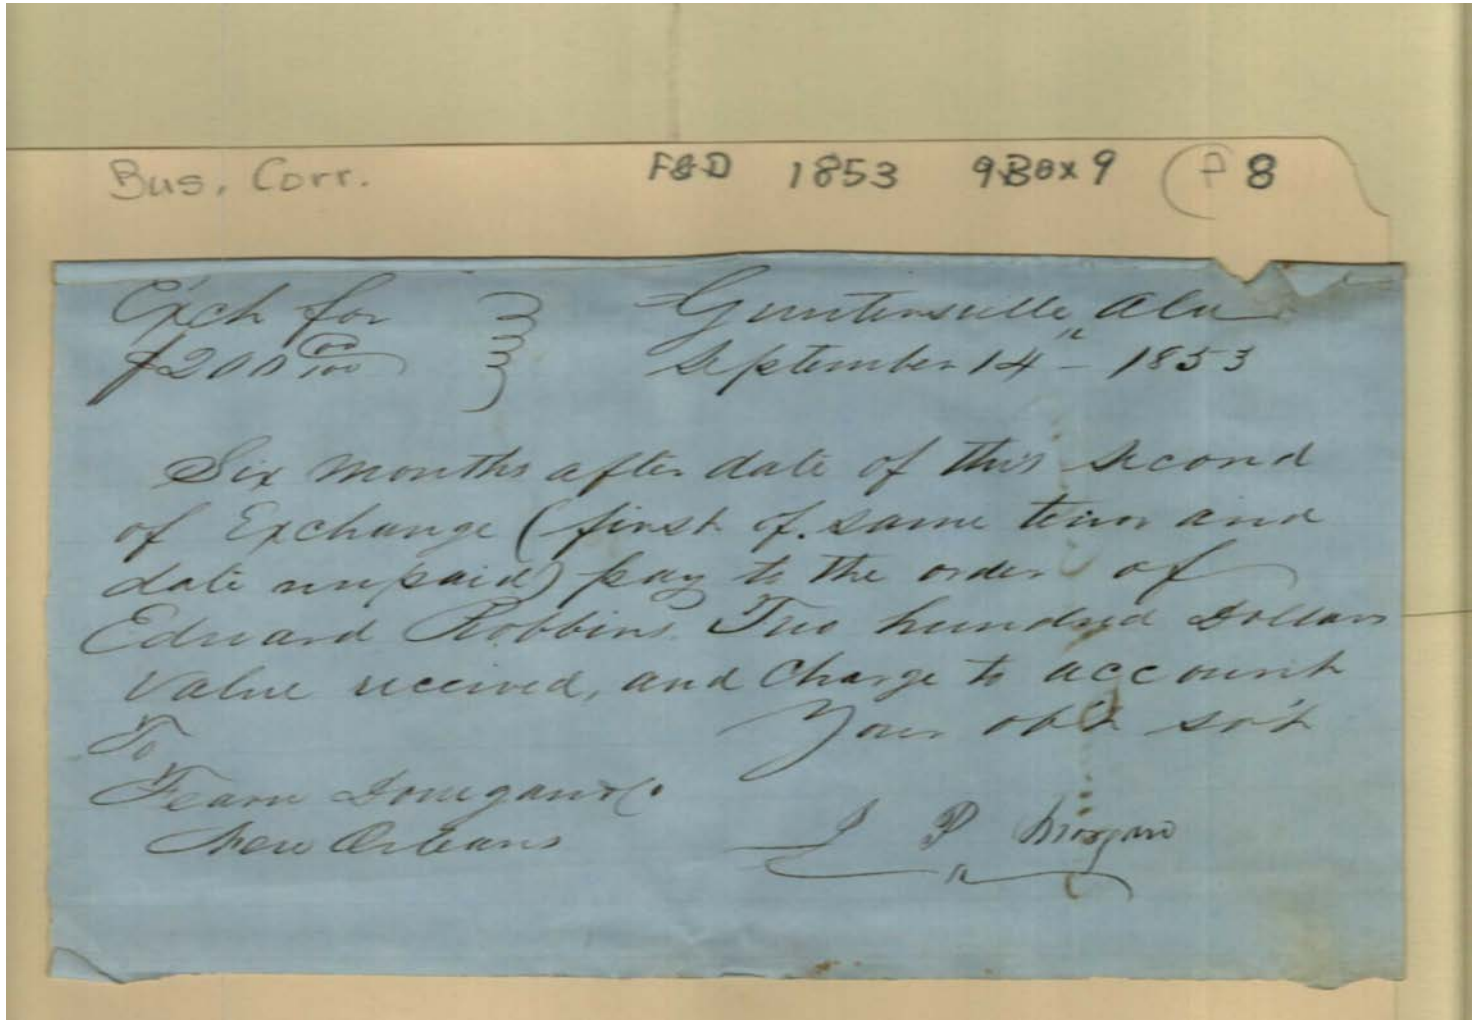 Bus. Corr. F&D 1853 9Box9 (P 8
Exch for Guntersville, Ala
$200 00/100 September 14" - 1853
Six months after date of this second
of Exchange (first of same tenor and
date unpaid) pay to the order of
Edward Robbins Two hundred Dollars
Value received, and Charge to account
To Your obt svt
Fearn Donegan & Co
New Orleans J P Morgan